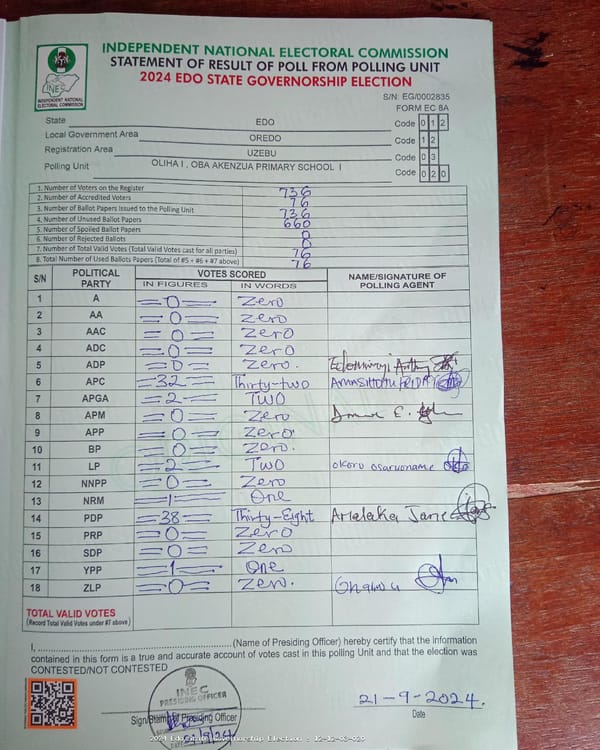 INDEPENDENT NATIONAL ELECTORAL COMMISSION
STATEMENT OF RESULT OF POLL FROM POLLING UNIT
2024 EDO STATE GOVERNORSHIP ELECTION
INEC
INDEPENDENT NATIONAL ELECTORAL COMMISSION
S/N: EG/0002835
FORM EC 8A
State EDO Code 0 1 2
Local Government Area OREDO Code 1 2
Registration Area UZEBU Code 0 3
Polling Unit OLIHA I , OBA AKENZUA PRIMARY SCHOOL I Code 0 2 0
1. Number of Voters on the Register 736
2. Number of Accredited Voters 76
3. Number of Ballot Papers Issued to the Polling Unit 736
4. Number of Unused Ballot Papers 660
5. Number of Spoiled Ballot Papers 0
6. Number of Rejected Ballots 0
7. Number of Total Valid Votes (Total Valid Votes cast for all parties) 76
8. Total Number of Used Ballots Papers (Total of #5 + #6 + #7 above) 76
S/N POLITICAL PARTY VOTES SCORED NAME/SIGNATURE OF POLLING AGENT
IN FIGURES IN WORDS
1 A =0= Zero
2 AA =0= Zero
3 AAC =0= Zero
4 ADC =0= Zero
5 ADP =0= Zero.
6 APC =32= Thirty-two
7 APGA =2= TWO
8 APM =0= Zero
9 APP =0= Zero
10 BP =0= Zero.
11 LP =2= Two okoro osaruoname
12 NNPP =0= Zero
13 NRM =1= One
14 PDP =38= Thirty-Eight Amalaka Jane
15 PRP =0= Zero
16 SDP =0= Zero
17 YPP =1= One
18 ZLP =0= Zero.
TOTAL VALID VOTES
(Record Total Valid Votes under #7 above)
I, (Name of Presiding Officer) hereby certify that the information
contained in this form is a true and accurate account of votes cast in this polling Unit and that the election was
CONTESTED/NOT CONTESTED
INEC
PRESIDING OFFICER
21-9-2024.
Sign/Stamp of Presiding Officer Date
DATE 21/9/24
2024 Edo State Governorship Election - 12-12-03-020